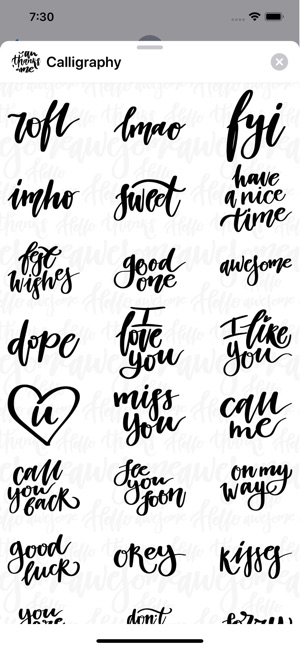 7:30
can
thanks
me
Calligraphy
rofl
lmao
fyi
imho
sweet
have
a nice
time
best
wishes
good
one
awesome
dope
I
love
you
I like
you
u
miss
you
call
me
call
you
back
see
you
soon
on my
way
good
luck
okey
kisses
you
are
don't
sorry